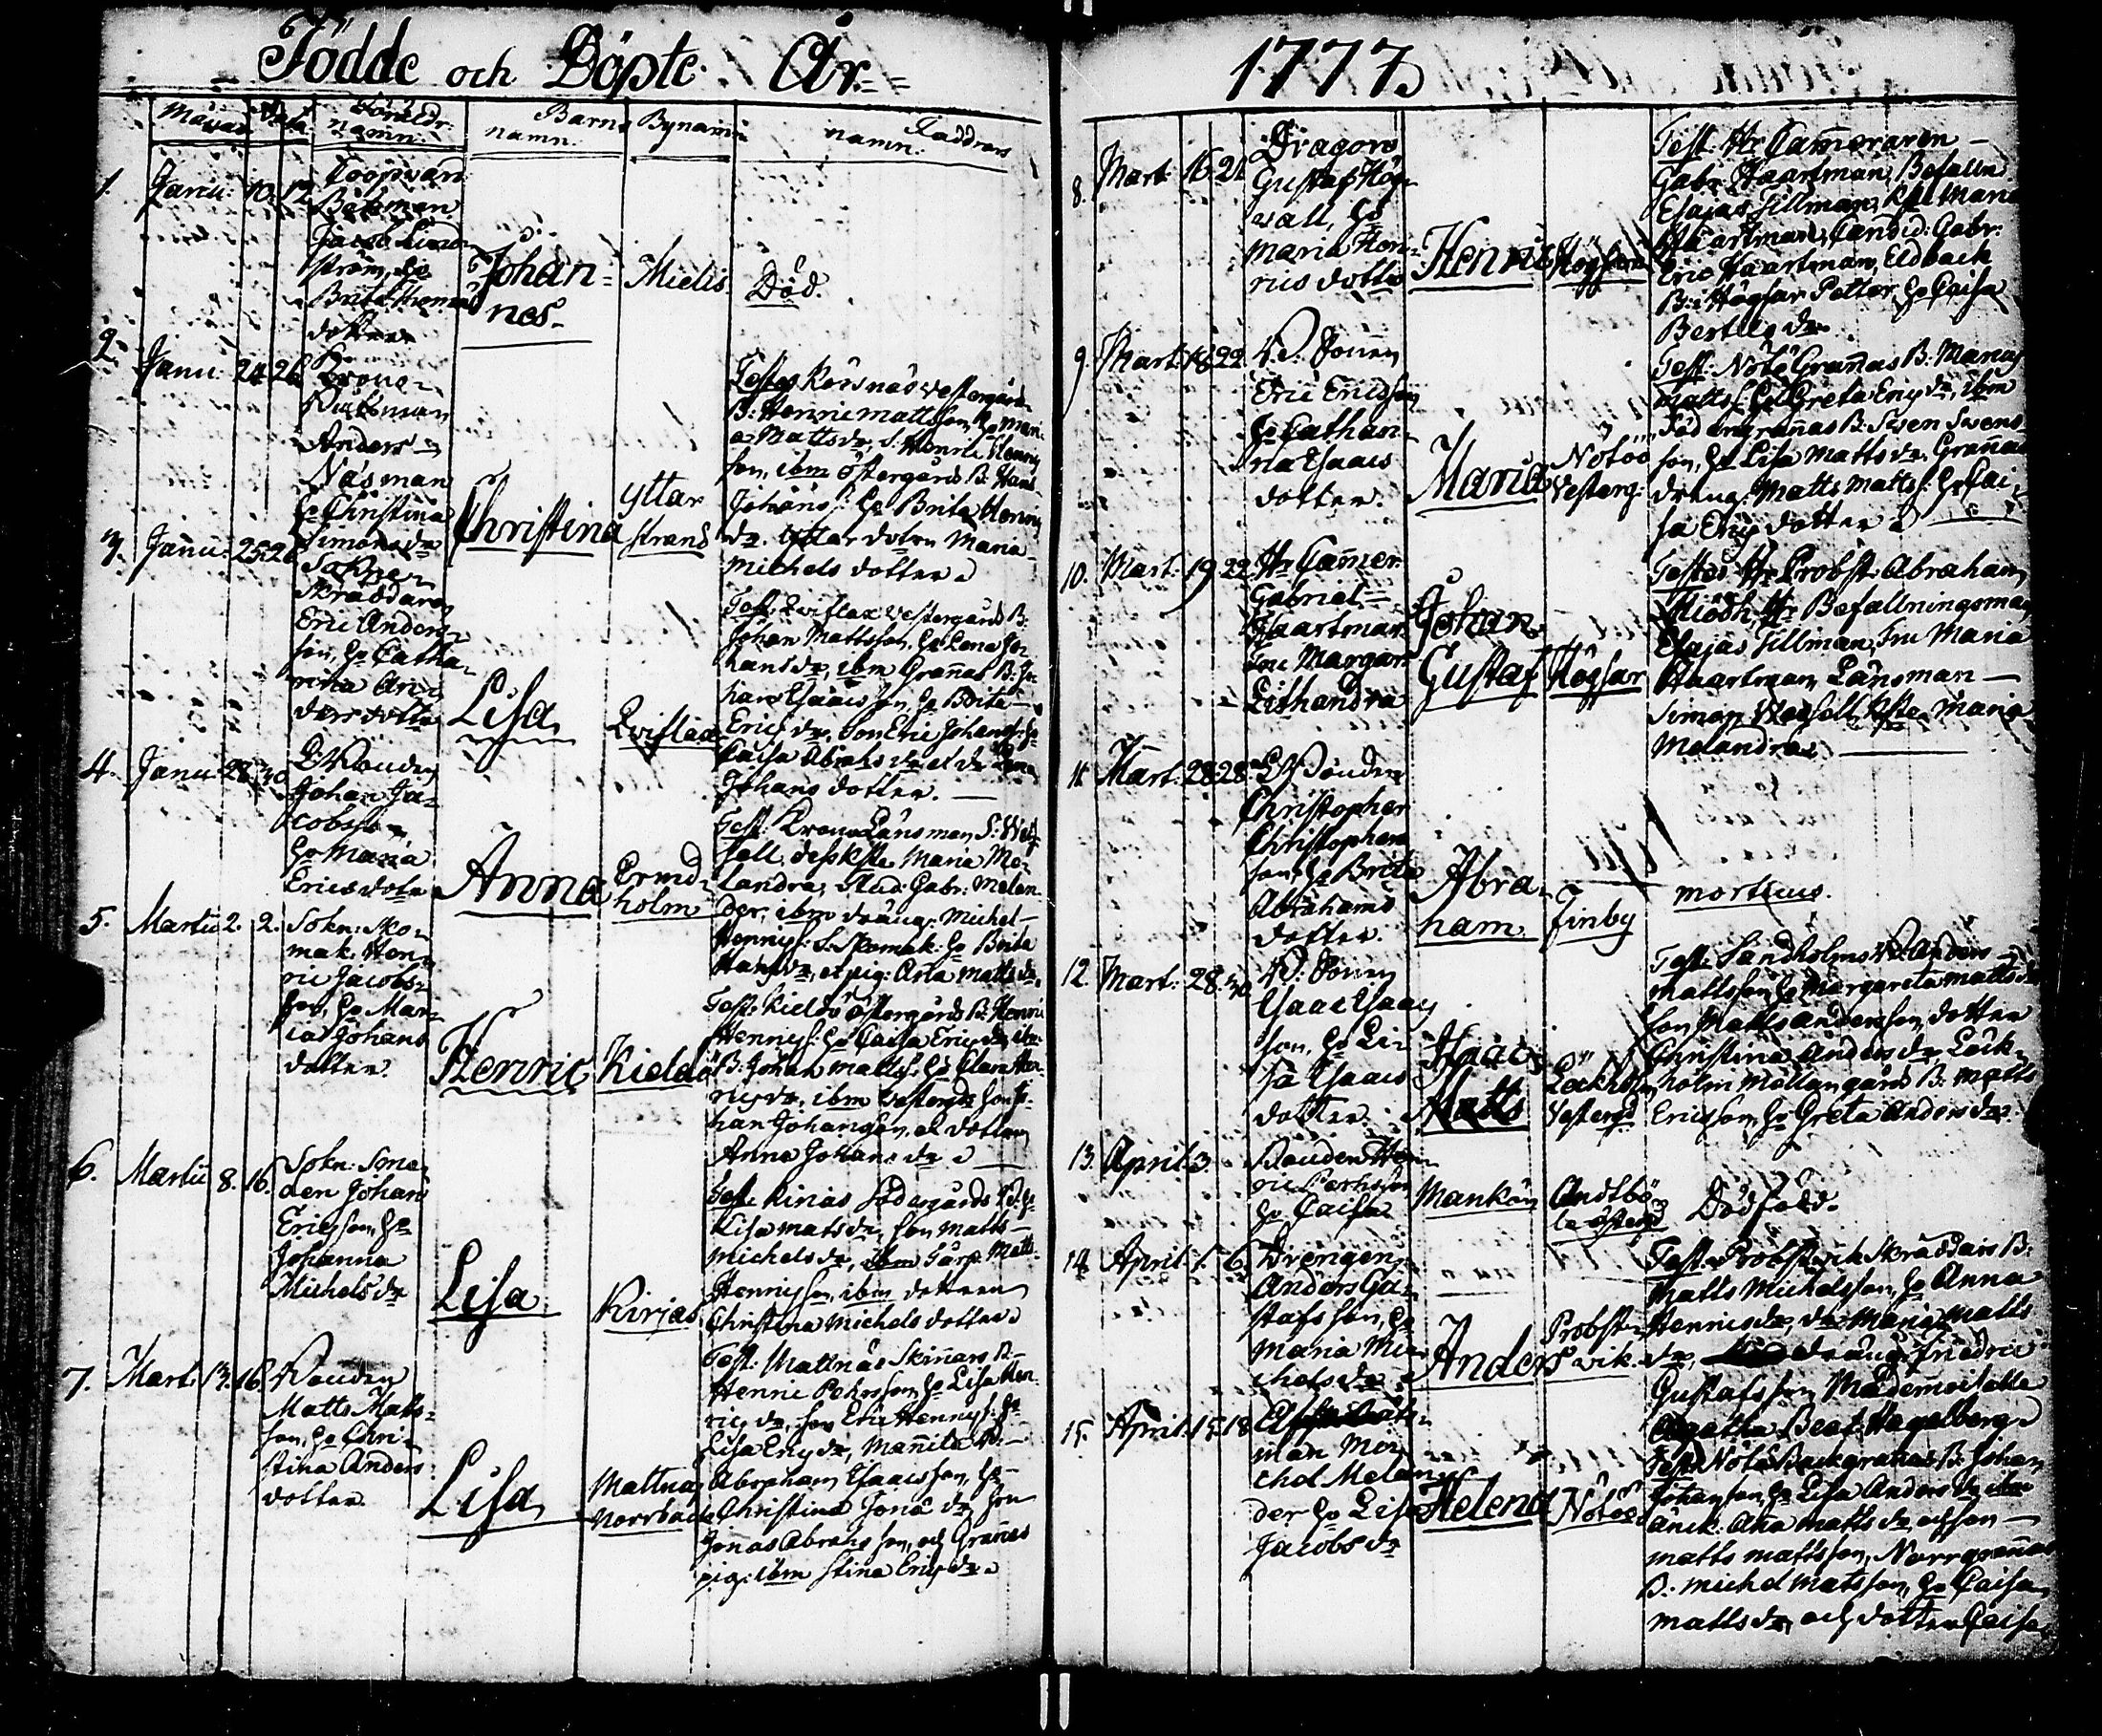 Födde och Döpte År
Månad Data Föräldr. namn. Barns namn. Bynamn Faddrars namn.
1. Janu: 10. 12.
Båtsman
Jacob Lind-
ström, h:o
Brita Thomas
dotter
Johan-
nes.
Mielis
Död.
2. Janu: 24. 26.
Anders
Näsman
h:o Christina
Simons d:r
Christina
yttar
strand
Testes Korsnäs vestergårds
B: Henric mattsson, h:o Mari-
a Matts d:r, S: Henric Henrics
son, ibm östergårds B: Hans
Johans s: h:o Brita Henrics
d:r. yttar dotern Maria
Michels dotter
3. Janu: 25. 26.
Sokne
Skräddaren
Eric Anders-
son, h:o Catha-
rina An-
dersdotter
Lisa
Qviflax
Test: Qviflax Vestergårds B:
Johan Mattsson, h:o Lena Jo-
hans d:r, ibm Grannas B: Jo-
han Isaacsson, h:o Brita
Erics d:r, Son Eric Johans s: h:o
Caisa Abrahs d:r et d:r Lena
Johans dotter.
4. Janu: 28. 30
Bonden
Johan Ja-
cobsson
h:o Maria
Ericsdotr
Anna
Ermd-
holm
Test: Krono Länsman, S: Wes-
sell, dess K:sta Maria Me-
landra, Stud: Gabr: Melan-
der, ibm dräng Michel
Henrics s: S: Skomak: h:o Brita
Hans d:r, et pig: Anna Matts d:r.
5. Martii 2. 2.
Sokn: Sko-
mak. Hen-
ric Jacobs-
son, h:o Mar-
ia Johans
dotter.
Henric
Kieldö
Test: Kieldö östergårds B: Henric
Henrics s: h:o Caisa Erics d:r, ibm
B: Johan matts s: h:o Clara Hen-
rics d:r, ibm vestergds son Jo-
han Johansson, et dottern
Anna Johans d:r
6. Martii 8. 16.
Sokn: Sme-
den Johan
Ericsson, h:o
Johanna
Michels d:r
Lisa
Kirjas
Test: Kirias Södergårds B: h:o
Lisa mats d:r, son Matts
Michels d:r, ibm Matts
Henricsson, ibm dottren
Christina Michels dotter
7. Mart: 13. 16.
Bonden
Matts Mats-
son, h:o Chri-
stina Anders
dotter.
Lisa
Mattnäs
Norrbacka
Test: Mattnäs Skinnars B:
Henric Pehrsson, h:o Lisa Hen-
rics d:r, son Eric Henrics s: h:o
Lisa Erics d:r, Mannila B:
Abraham Isaacsson, h:o
Christina Jona d:r son
Jonas Abrahs son, och Grannas
pig: ibm Stina Erics d:r
1777
8. Mart: 16. 21
Dragon
Gustaf Hög-
vall, h:o
Maria Hen-
rics dotter
Henric
Högsar
Test: H:r Cameraren
Gabr: Haartman, Befalln
Esajas Tillman, K:sta Maria
Haartman, Candid: Gabr:
Eric Haartman, Eldback
B: Högsar Petter h:o Caisa
Bertils d:r
9. Mart: 18. 22.
B. Sonen
Eric Ericsson
h:o Catha-
rina Isaacs
dotter.
Maria
Nötöö
Vesterg:
Test: Nötö Grannas B. Marias
Matts s: h:o Greta Erics d:r, ibm
Södergrannas B: Sven Svens-
son, h:o Lisa Matts d:r. Grannas
dreng: Matts Matts s: h:o Cai-
sa Erics dotter
10. Mart: 19. 22.
H:r Camer:
Gabriel
Haartman
Fru Margar:
Lithandra
Johan
Gustaf
Högsar
Testes H:r Probst Abraham
Miödh, H:r Befallningsman
Esajas Tillman, Fru Maria
Haartman Länsman
Simon Wessell K:sta Maria
Melandra
11. Mart: 28. 28
Bonden
Christopher
Christophers
son, h:o Brita
Abrahams
dotter.
Abra-
ham.
Finby
mortuus.
12. Mart: 28. 30
B. Sonen
Isaac Isaacs
son, h:o Li-
sa Isaacs
dotter
Isaac
Matts
Löckholm
Vestergd
Test: Sandholms B: Anders
mattsson, h:o Margareta matts d:r
son Matts andersson, dotter
Christina Anders d:r, Löck-
holm Mellangårds B: Matts
Ericsson, h:o Greta Anders d:r
13. April 3
Bonden Hen-
ric Pehrsson
h:o Caisa
Mankön
Andtbö-
le östergd
Dödfödd.
14. April. 1. 6.
Drengen
Anders Gu-
stafsson, h:o
Maria Mi-
chels d:r
Anders
Probst-
vik.
Test: Probstvik Skräddars B:
Matts Michelsson, h:o Anna
Henrics d:r, d:r Maria Matts
d:r, dräng: Friedric
Gustafsson Mademoiselle
Agatha Beat: Hagelberg
15. April. 15. 18.
man Mi-
chel Melan-
der h:o Lisa
Jacobs d:r
Helena
Nötöö
Test: Nötö Backgrannas B: Johan
Johansson, h:o Lisa Anders d:r ibm
änck: Anna matts d:r, och son
matts mattsson, Norrgrannas
B. michel matsson, h:o Caisa
matts d:r, och dotter Caisa